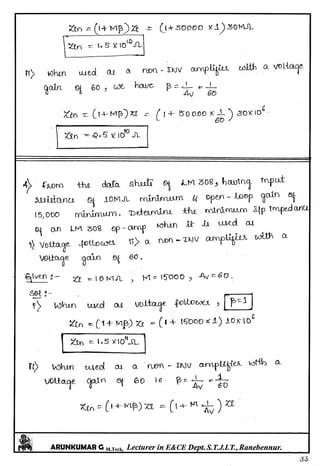 Zin = (1+Mβ) Zt = (1+50000 x1) 30MΩ
Zin = 1.5 x10¹²Ω
ii) When used as a non-INV amplifier with a voltage
gain of 60, we have β = 1/Av = 1/60
Zin = (1+Mβ) zt = (1+50000 x 1/60) 30x10⁶
Zin = 2.5 x10¹⁰Ω
4) From the data sheets of LM 308, having Input
resistance of 10MΩ minimum & open-loop gain of
15,000 minimum. Determine the minimum I/p Impedance
of an LM 308 op-amp when It is used as
i) Voltage follower ii) a non-INV amplifier with a
Voltage gain of 60.
Given:- Zt = 10MΩ, M = 15000, Av = 60.
Sol:-
i) When used as voltage follower, β=1
Zin = (1+Mβ) Zt = (1+15000x1) 10x10⁶
Zin = 1.5 x10¹¹Ω
ii) When used as a non-INV amplifier with a
voltage gain of 60 ie β = 1/Av = 1/60
Zin = (1+Mβ) zt = (1+M 1/Av) zt
ARUNKUMAR G M.Tech, Lecturer in E&CE Dept. S.T.J.I.T., Ranebennur.
33